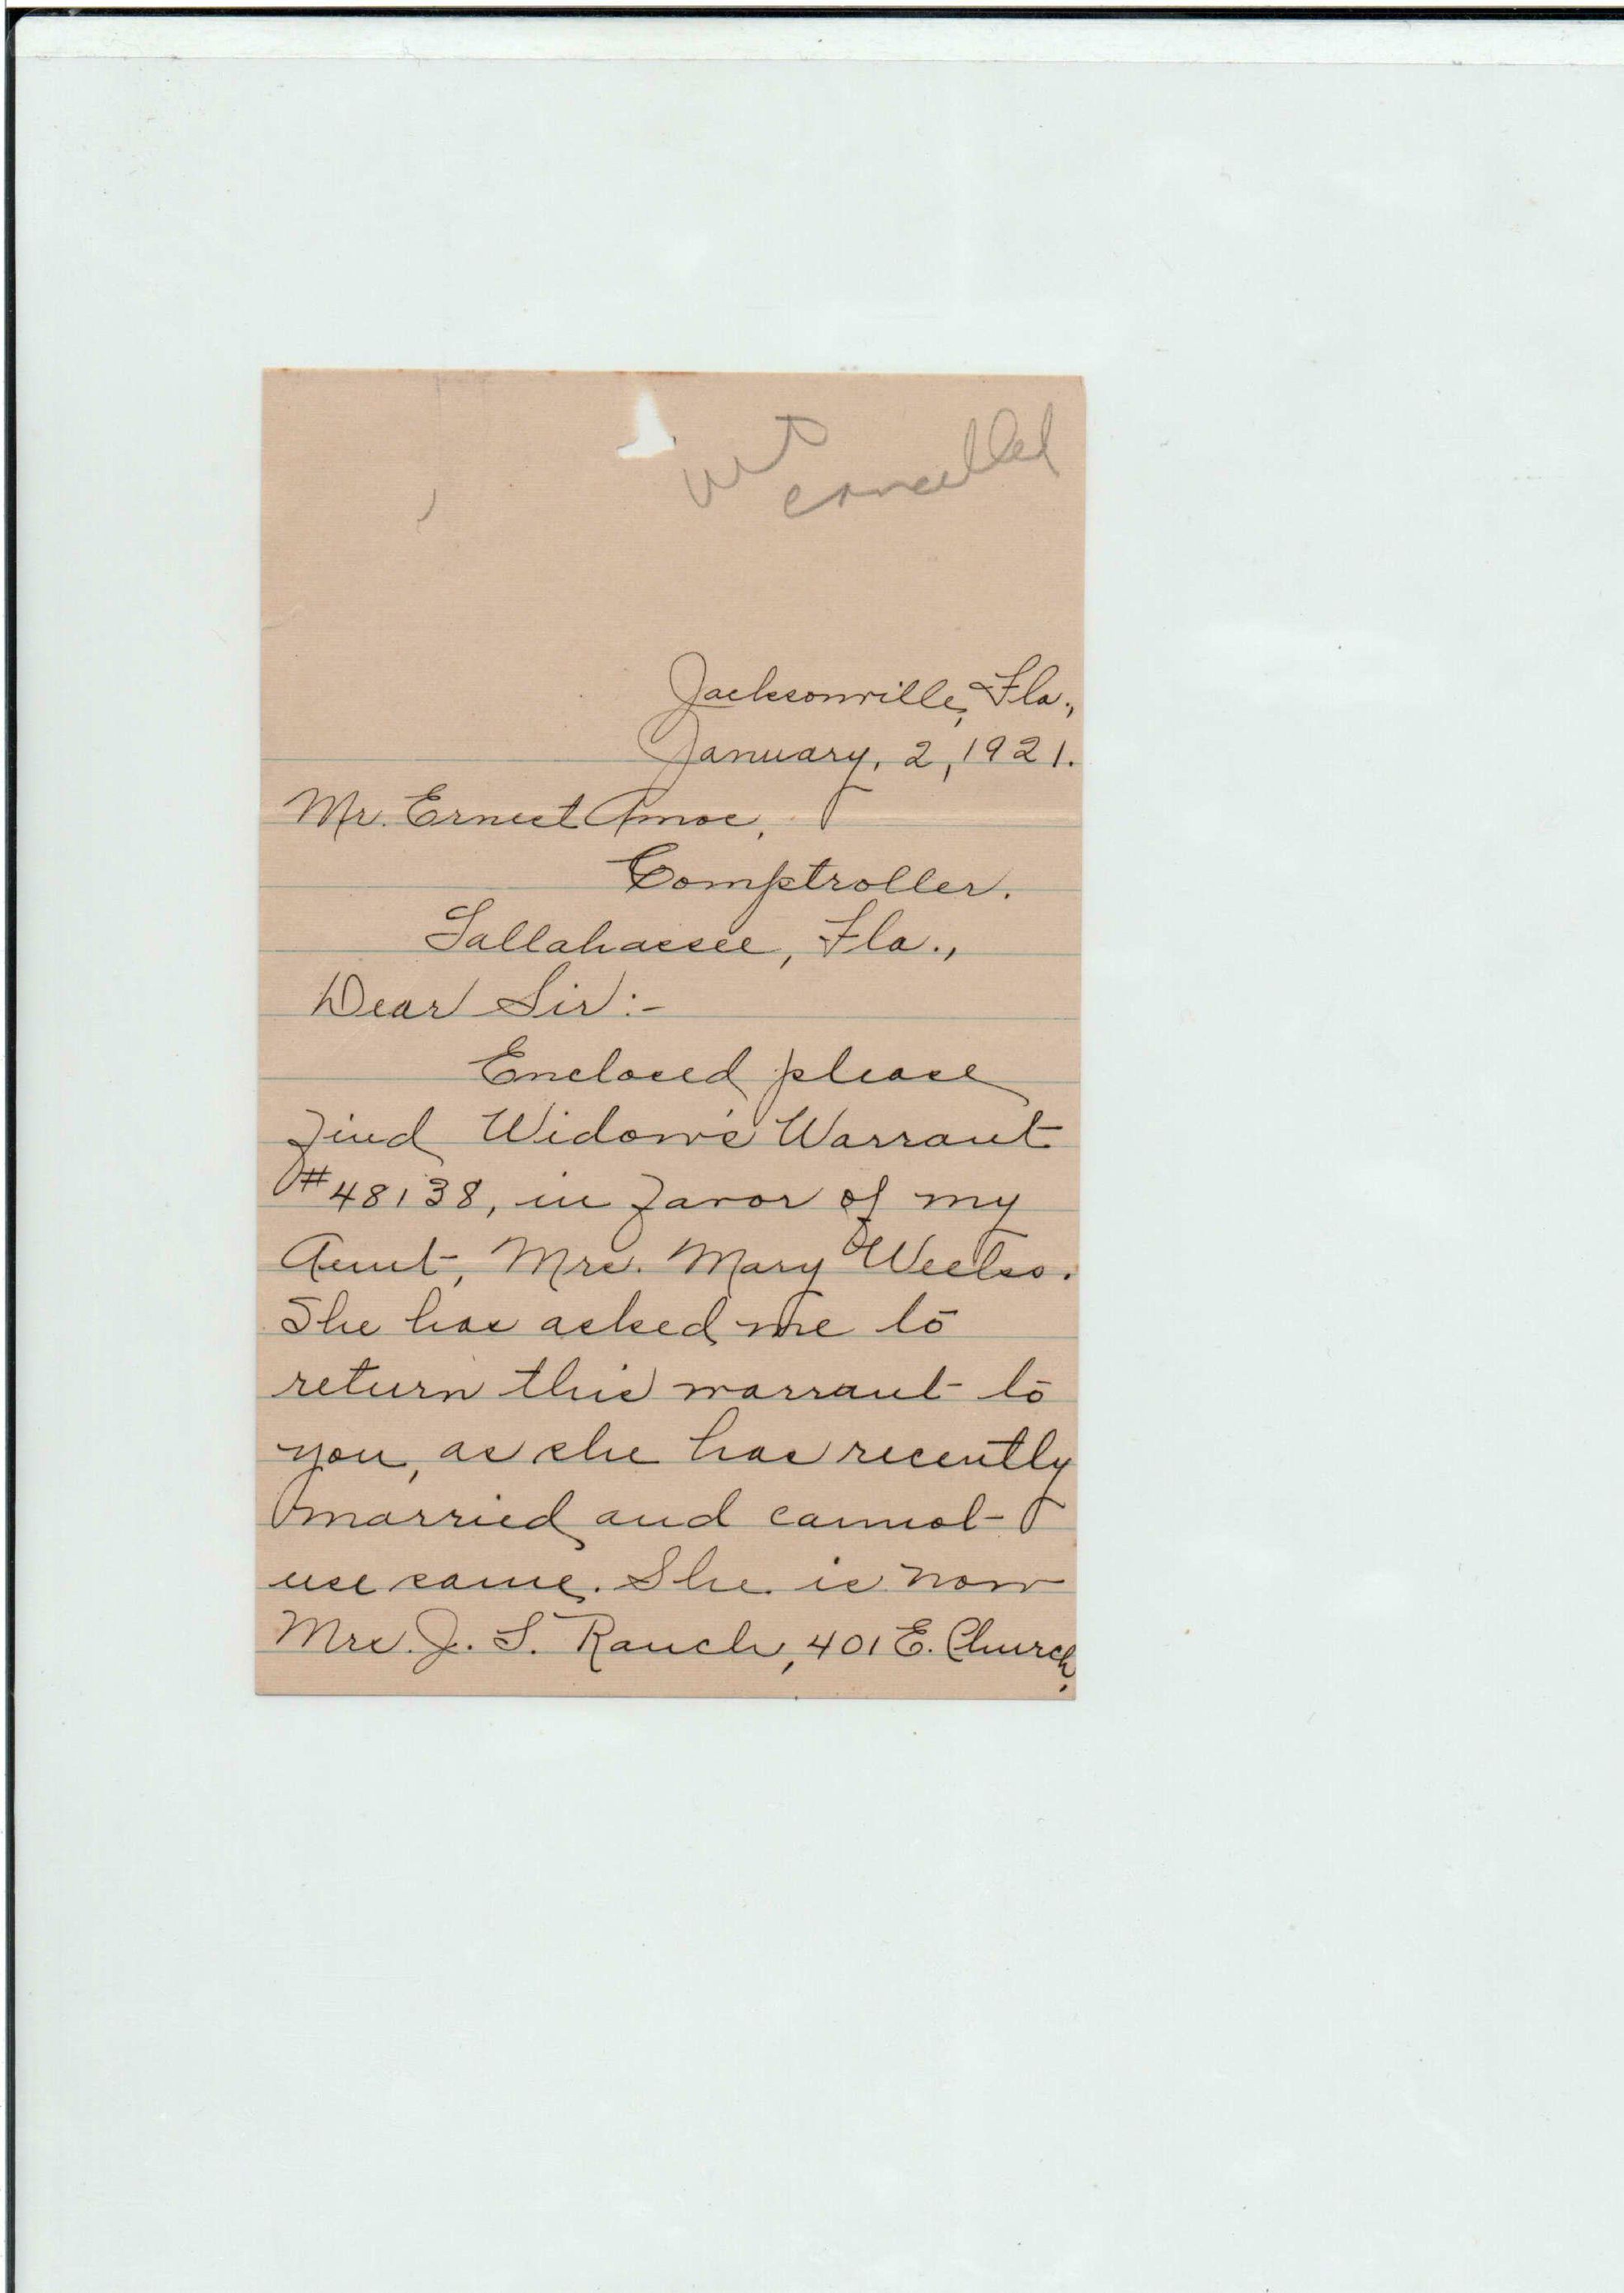 cancelled
Jacksonville, Fla.,
January, 2, 1921.
Mr. Ernest Amos,
Comptroller.
Tallahassee, Fla.,
Dear Sir:-
Enclosed please
find Widow's Warrant
#48138, in favor of my
Aunt, Mrs. Mary Weeks.
She has asked me to
return this warrant to
you, as she has recently
married and cannot
use same. She is now
Mrs. J. S. Rauch, 401 E. Church,